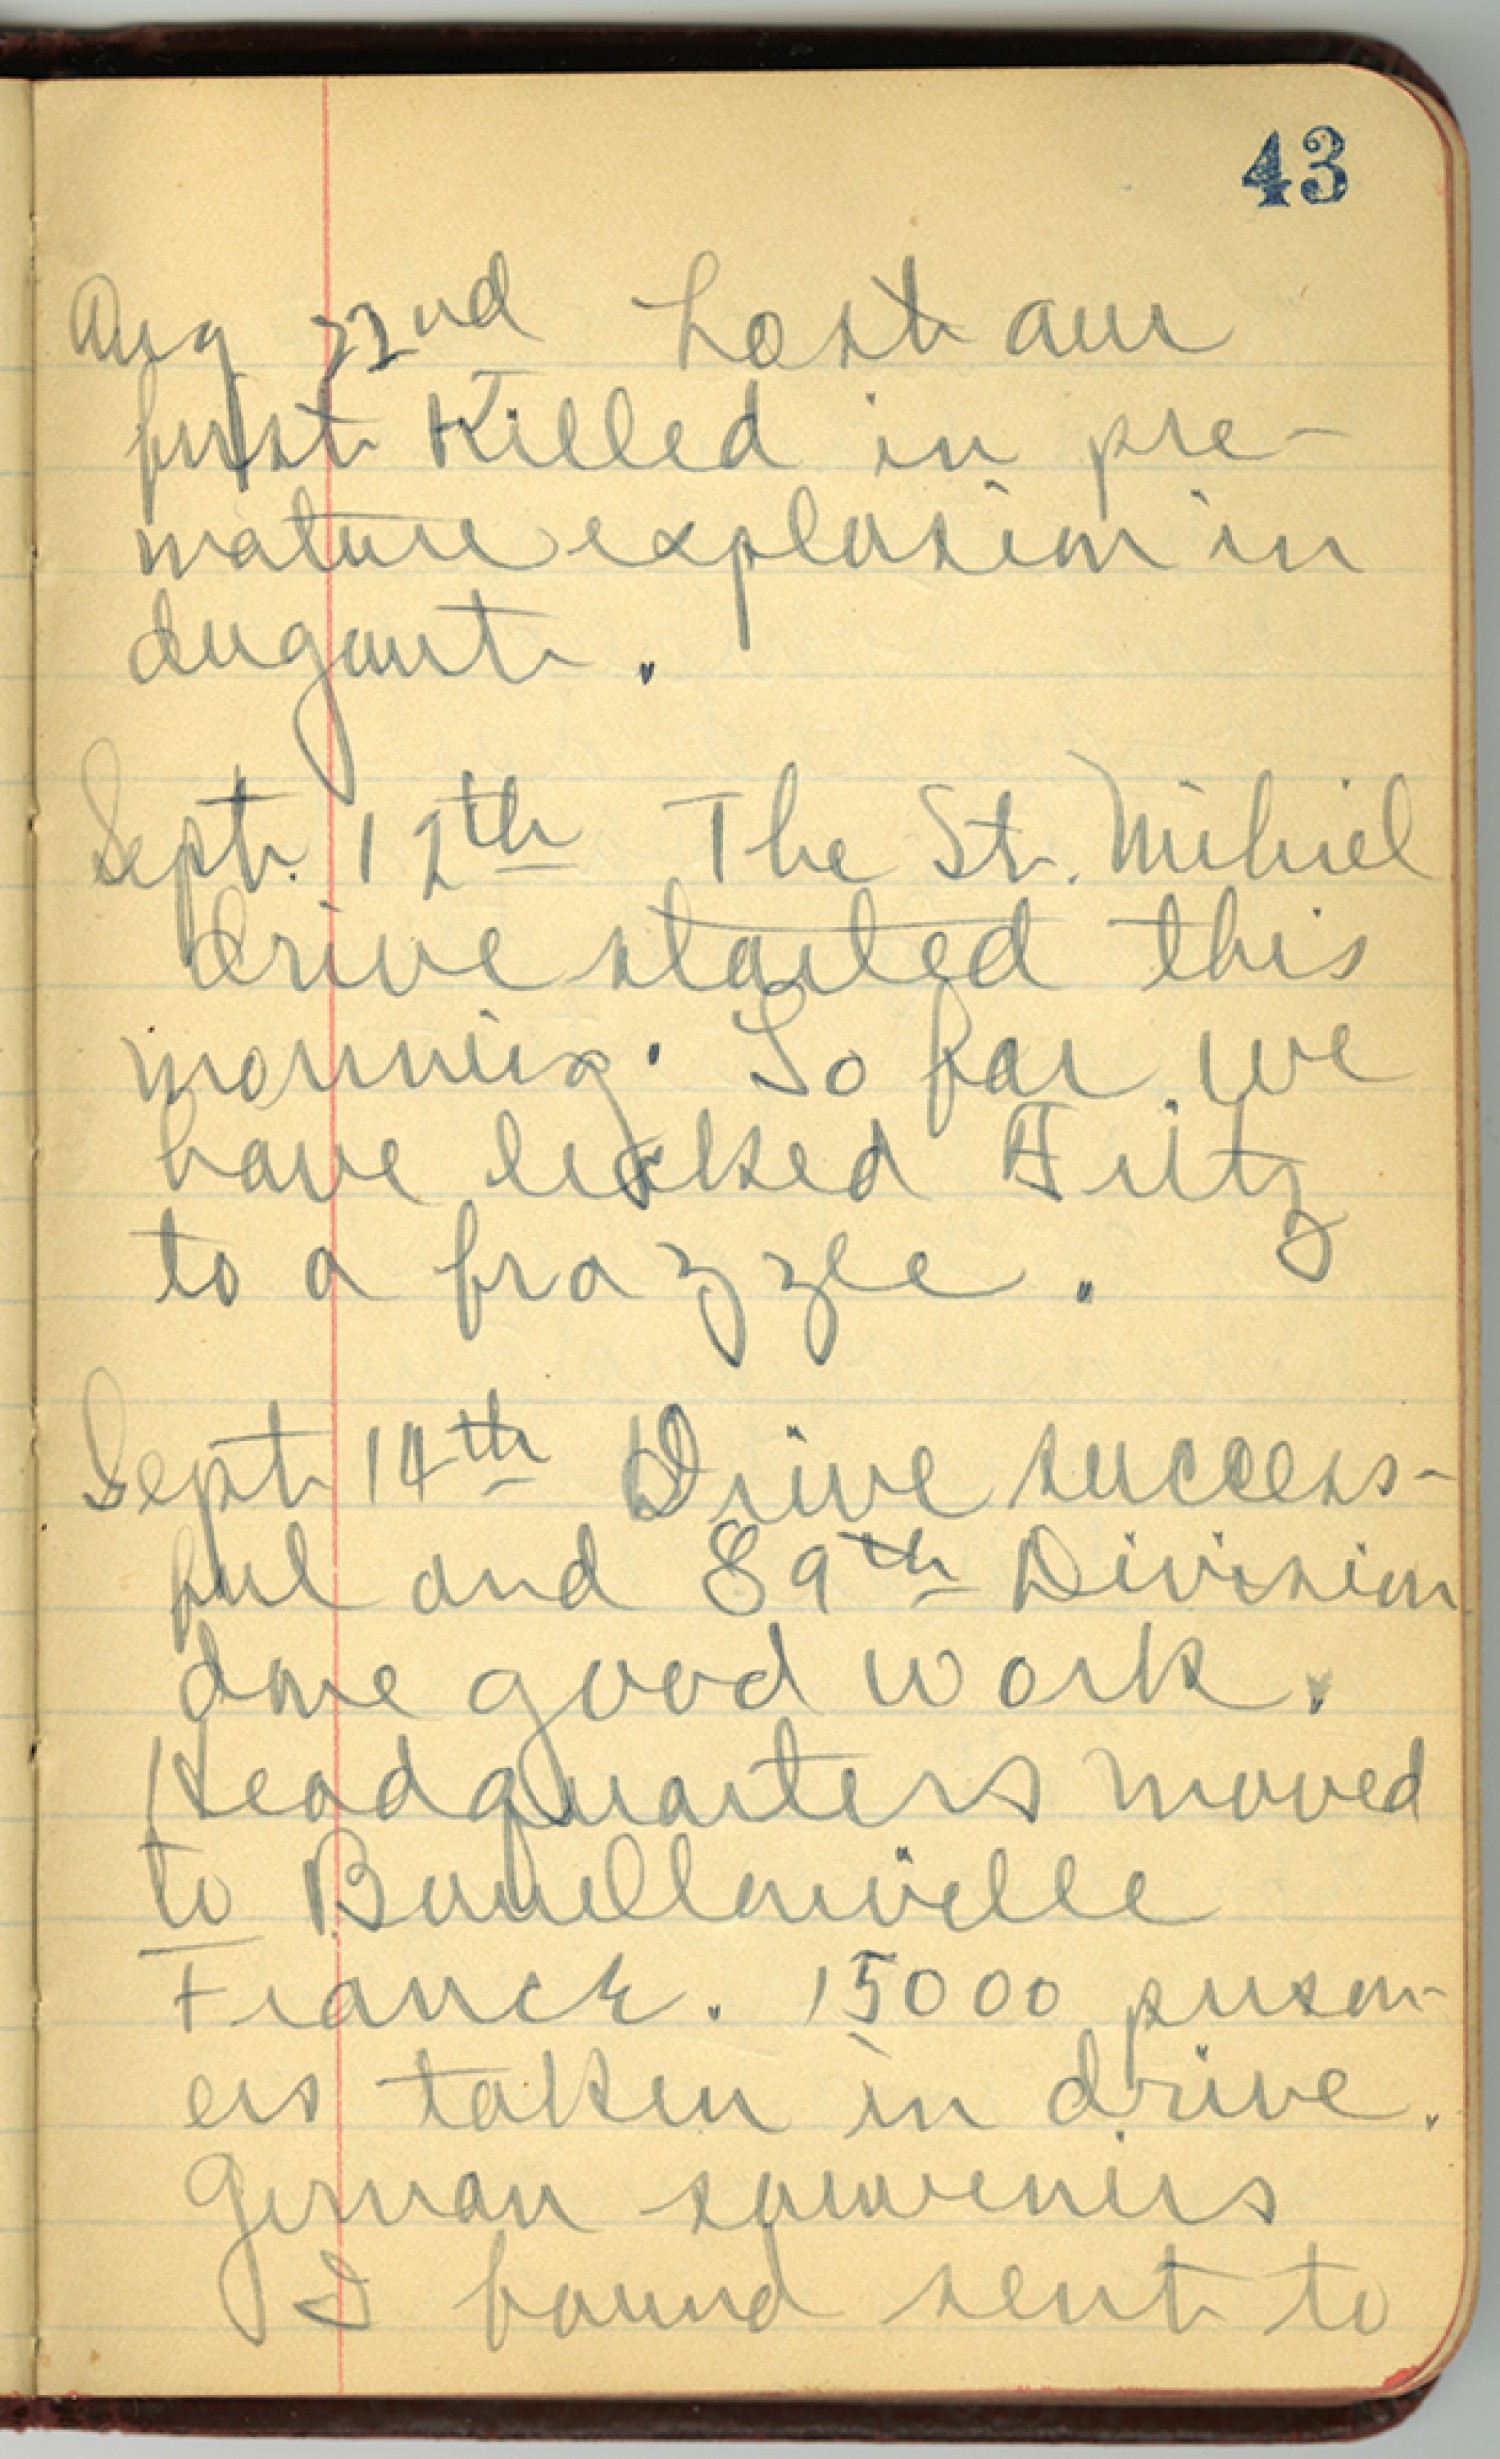 43
Aug 22nd Lost our
first Killed in pre-
mature explosion in
dugout.
Sept. 12th The St. Mihiel
drive started this
morning. So far we
have licked Fritz
to a frazzle.
Sept 14th Drive success-
ful and 89th Division
done good work.
Headquarters moved
to Bouillonville
France. 15000 prison-
ers taken in drive.
German souvenirs
I found sent to